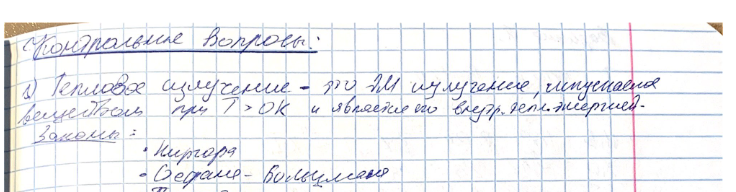 Контрольные вопросы:
1) Тепловое излучение - это ЭМ излучение, испускаемое
веществом при T > 0K и является его внутр. тепл. энергией.
Законы:
• Кирхгофа
• Стефана - Больцмана